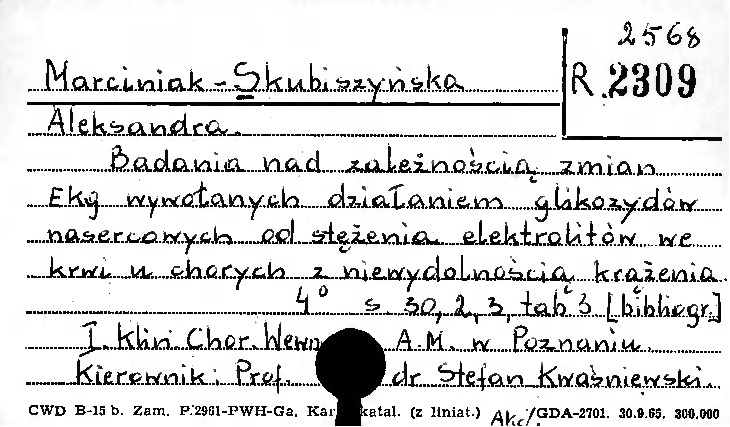 2568
Marciniak-Skubiszyńska
R.2309
Aleksandra.
Badania nad zależnością zmian
Ekg wywołanych działaniem glikozydów
nasercowych od stężenia elektrolitów we
krwi u chorych z niewydolnością krążenia.
4° s. 30, 2, 3, tab 3 [bibliogr.]
I. Klin. Chor. Wewn A.M. w Poznaniu.
Kierownik: Prof. dr Stefan Kwaśniewski.
CWD B-15 b. Zam. P.2961-PWH-Ga. Kar katal. (z liniat.) /GDA-2701. 30.9.65. 300.000